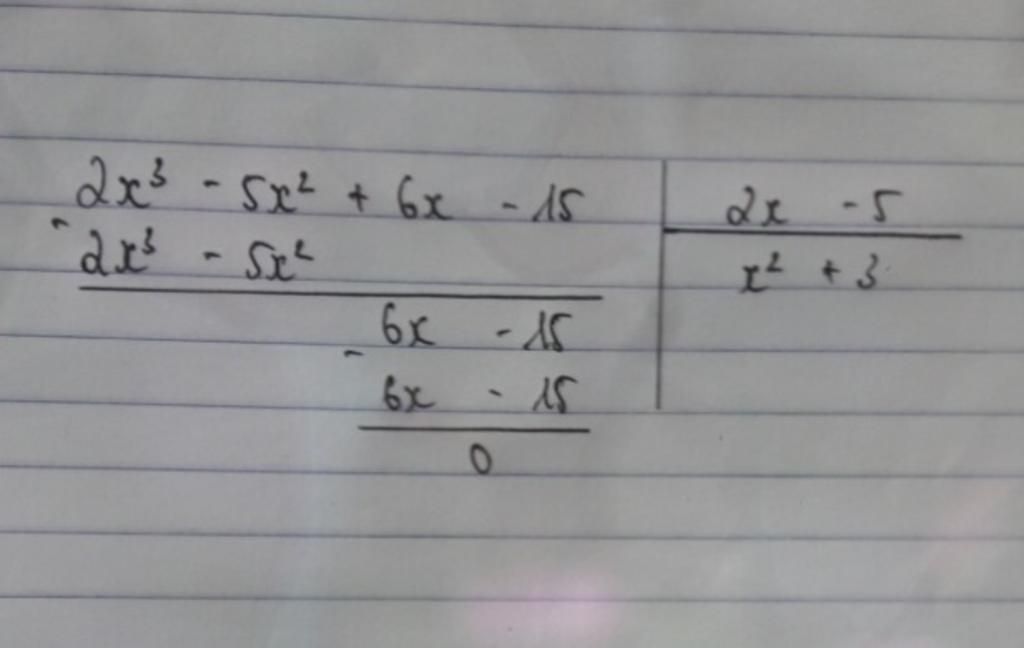 2x³ - 5x² + 6x - 15 | 2x - 5
- 2x³ - 5x² | x² + 3
6x - 15
- 6x - 15
0